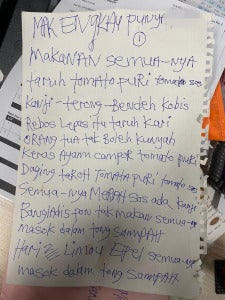 MAK ENGKAU punya
①
MAKANAN semua-nya
taruh tomato puri tomato sos
Kanji - terong - Bendeh Kobis
Rebos Lepas itu taruh Kari
ORANG tua tak Boleh Kunyah
Keras Ayam campor tomato puri
Daging taroh Tomato puri tomato sos
Semua-nya Merah sos ada kanji
Banglahis pan tak makan semua-nya
masok dalam tong SAMPAH
Hari2 Limau Epel semua-nya
masok dalam tong SAMPAH